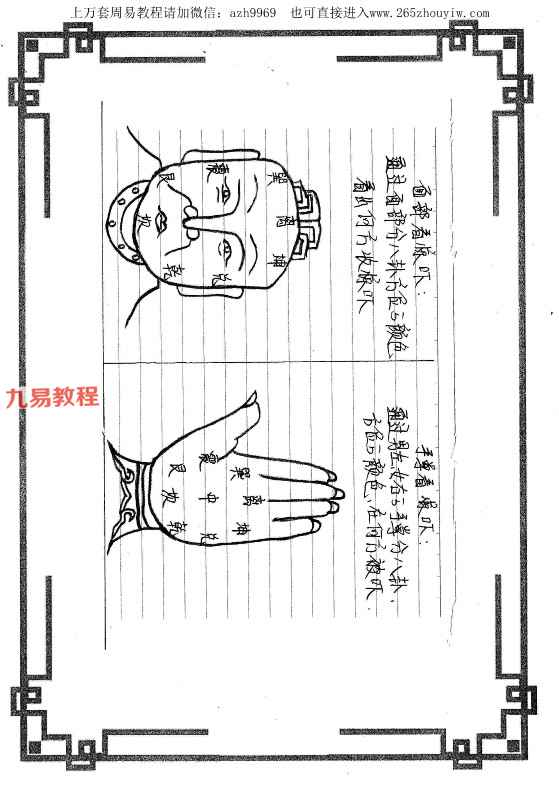 上万套周易教程请加微信：azh9969 也可直接进入www.265zhouyiw.com
面部看惊吓：
通过面部分八卦方位与颜色、
看出何方收惊吓
震
巽
艮
坎
离
乾
兑
坤
九易教程
手掌看惊吓：
通过男左女右手掌分八卦、
方位与颜色、在何方被吓.
震
艮
巽
坎
中
离
乾
兑
坤